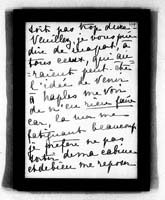 soit pas trop dure
Veuillez, je vous prie
dire de ma part, à
tous ceux, qui au-
raient peut être
l'idée de venir
à Naples me voir
de n'en rien faire
car, la vue me
fatiguant beaucoup
je préfère ne pas
sortir de ma cabine
et de me reposer